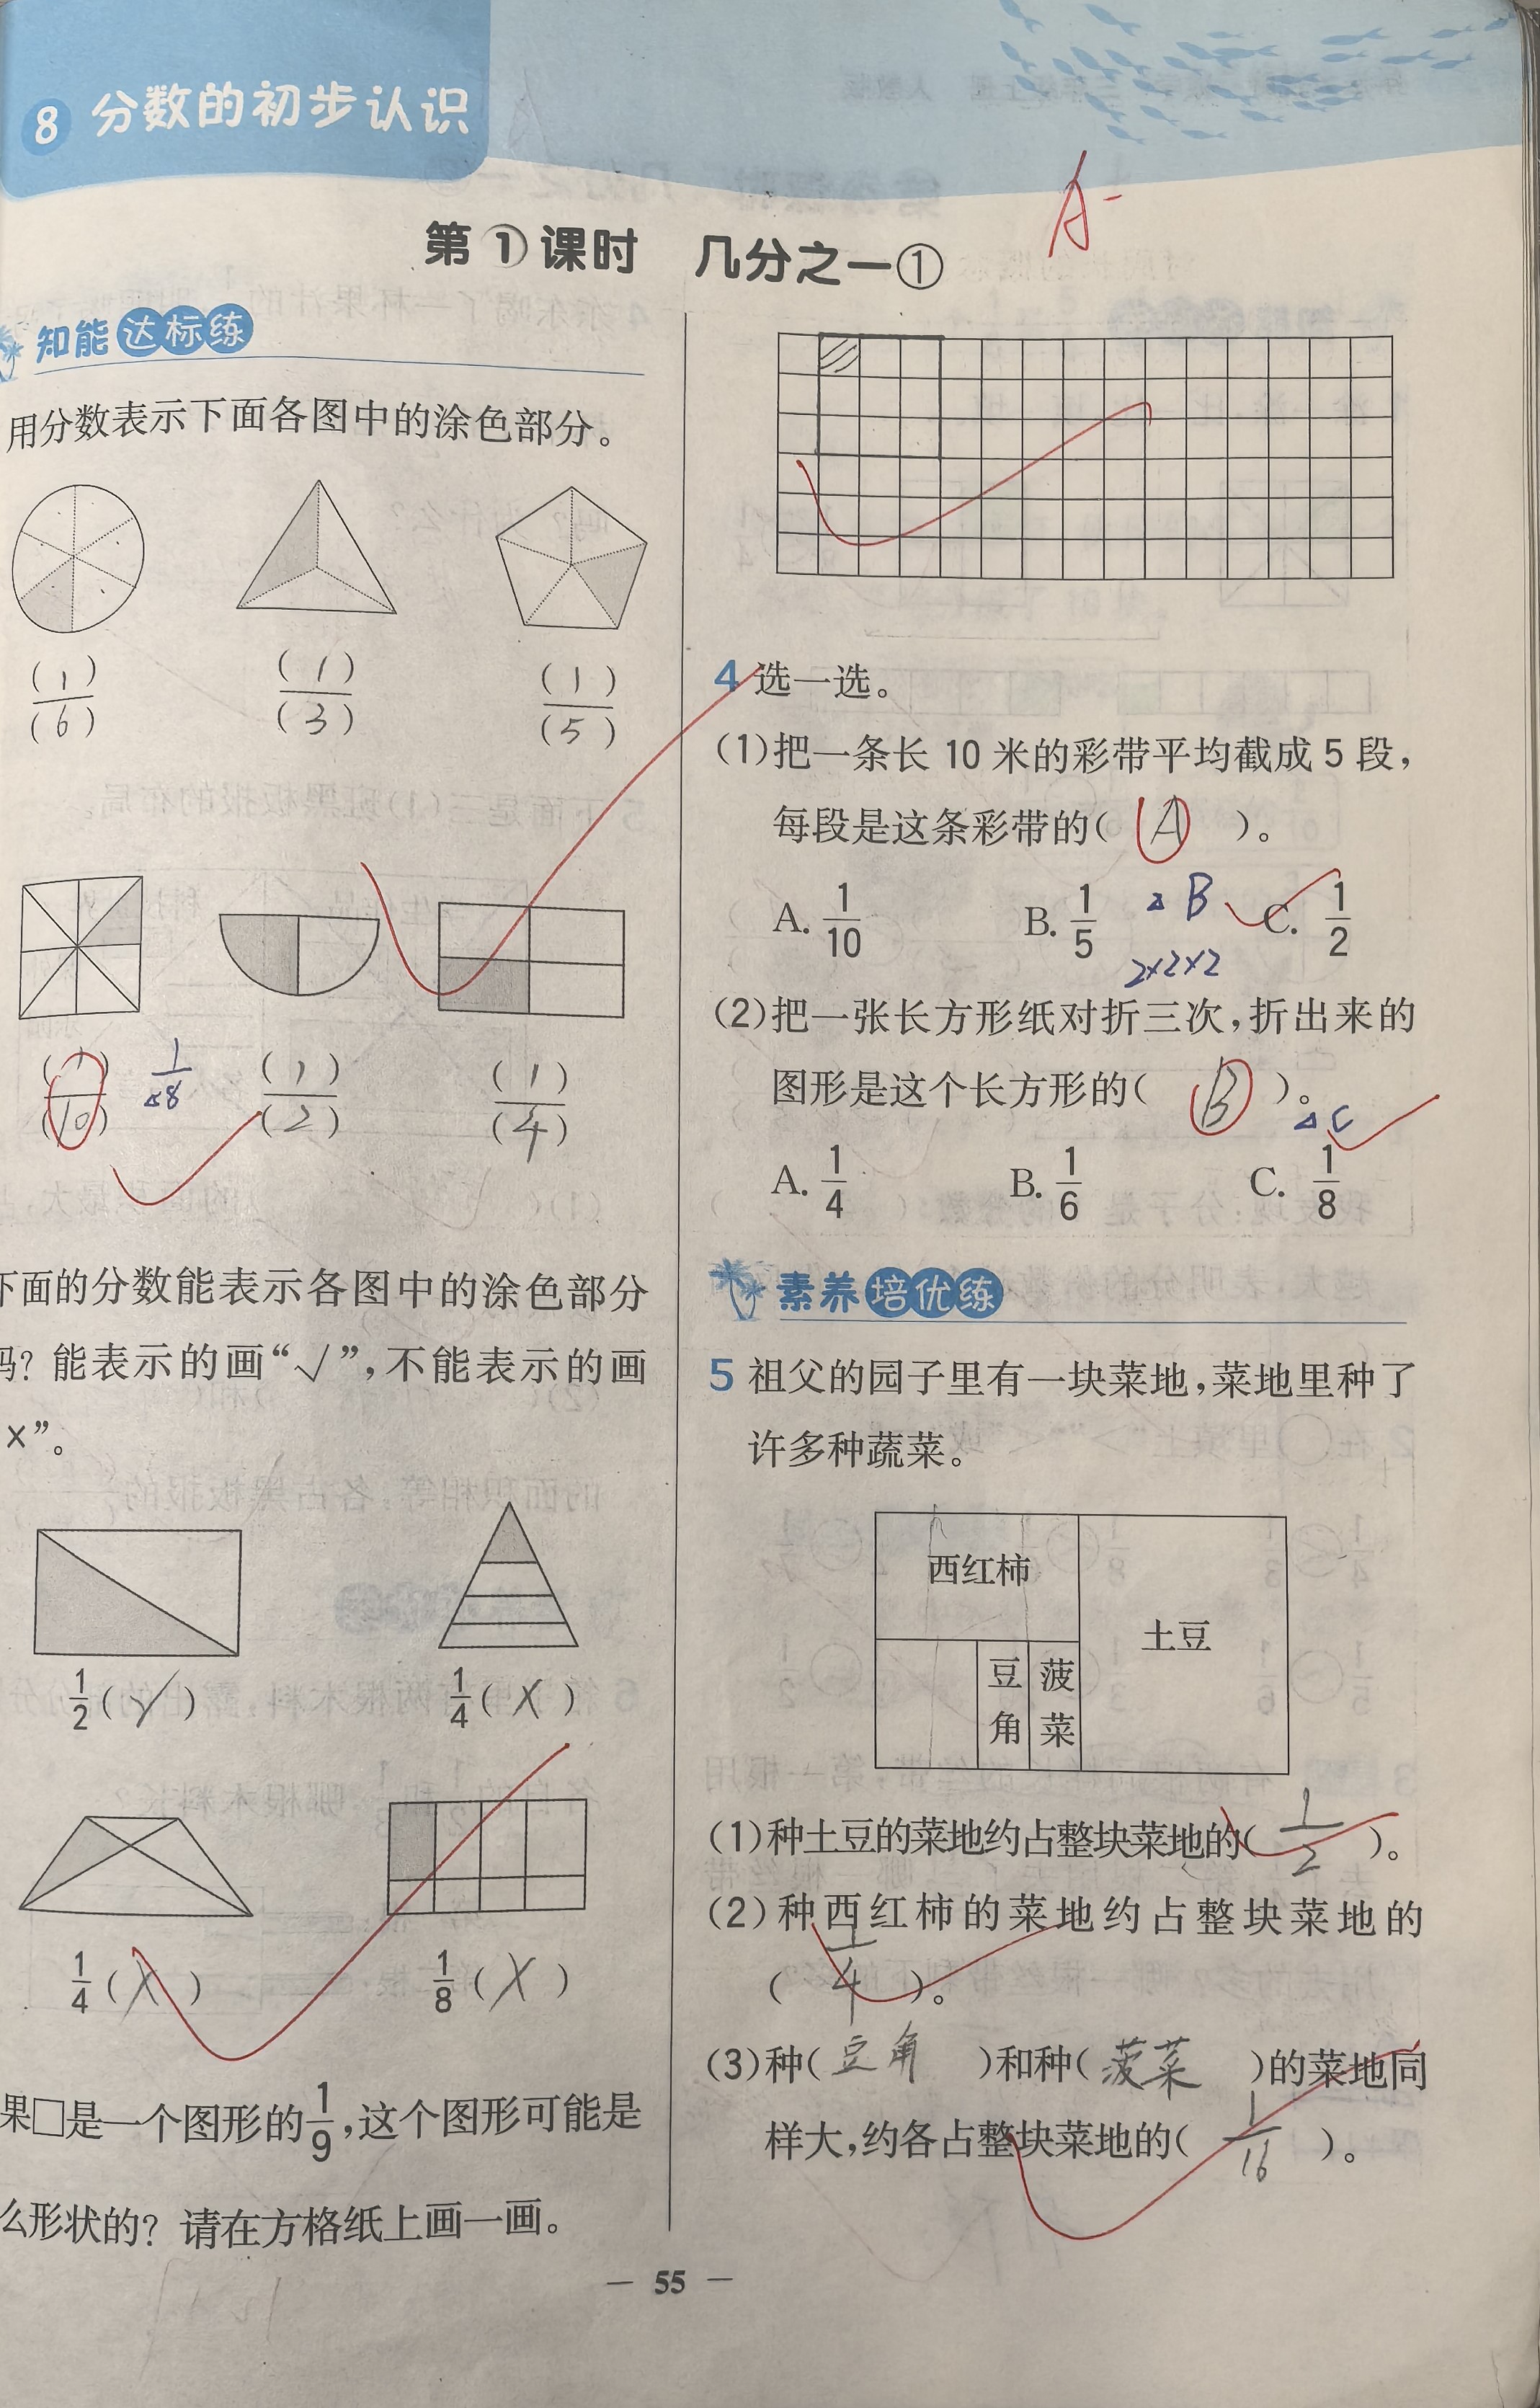 8 分数的初步认识
A-
第①课时 几分之一①
知能达标练
用分数表示下面各图中的涂色部分。
(1)/(6) (1)/(3) (1)/(5)
(1)/(10) 1/8 (1)/(2) (1)/(4)
下面的分数能表示各图中的涂色部分
吗?能表示的画“√”,不能表示的画
×”。
1/2(√) 1/4(X)
1/4(X) 1/8(X)
果□是一个图形的1/9,这个图形可能是
么形状的?请在方格纸上画一画。
4 选一选。
(1)把一条长10米的彩带平均截成5段,
每段是这条彩带的( A )。
A. 1/10 B. 1/5 B C. 1/2
2×2×2
(2)把一张长方形纸对折三次,折出来的
图形是这个长方形的( B )。
C
A. 1/4 B. 1/6 C. 1/8
素养培优练
5 祖父的园子里有一块菜地,菜地里种了
许多种蔬菜。
西红柿
土豆
豆角
菠菜
(1)种土豆的菜地约占整块菜地的( 1/2 )。
(2)种西红柿的菜地约占整块菜地的
( 1/4 )。
(3)种( 豆角 )和种( 菠菜 )的菜地同
样大,约各占整块菜地的( 1/16 )。
— 55 —